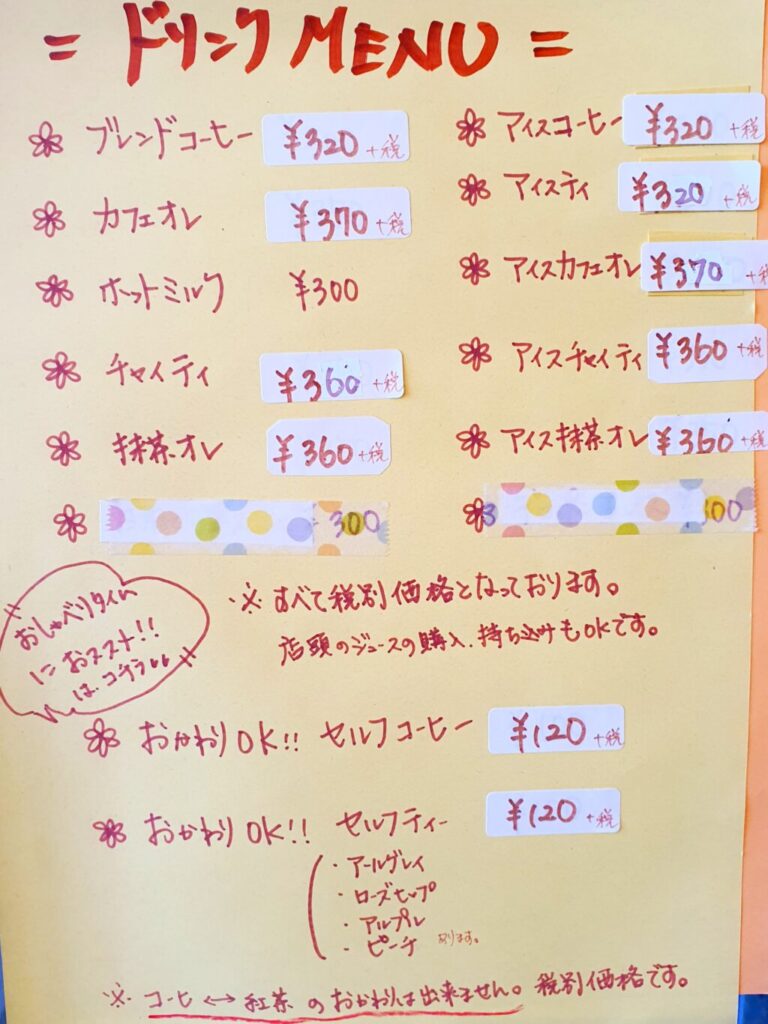 = ドリンク MENU =
ブレンドコーヒー ¥320 +税
カフェオレ ¥370 +税
ホットミルク ¥300
チャイティ ¥360 +税
抹茶オレ ¥360 +税
300
アイスコーヒー ¥320 +税
アイスティ ¥320 +税
アイスカフェオレ ¥370 +税
アイスチャイティ ¥360 +税
アイス抹茶オレ ¥360 +税
300
※すべて税別価格となっております。
店頭のジュースの購入、持ち込みもOKです。
おしゃべりタイム
におススメ!!
は、コチラ
おかわりOK!! セルフコーヒー ¥120 +税
おかわりOK!! セルフティー ¥120 +税
・アールグレイ
・ローズヒップ
・アルプル
・ピーチ あります。
※コーヒ↔紅茶のおかわりは出来ません。税別価格です。